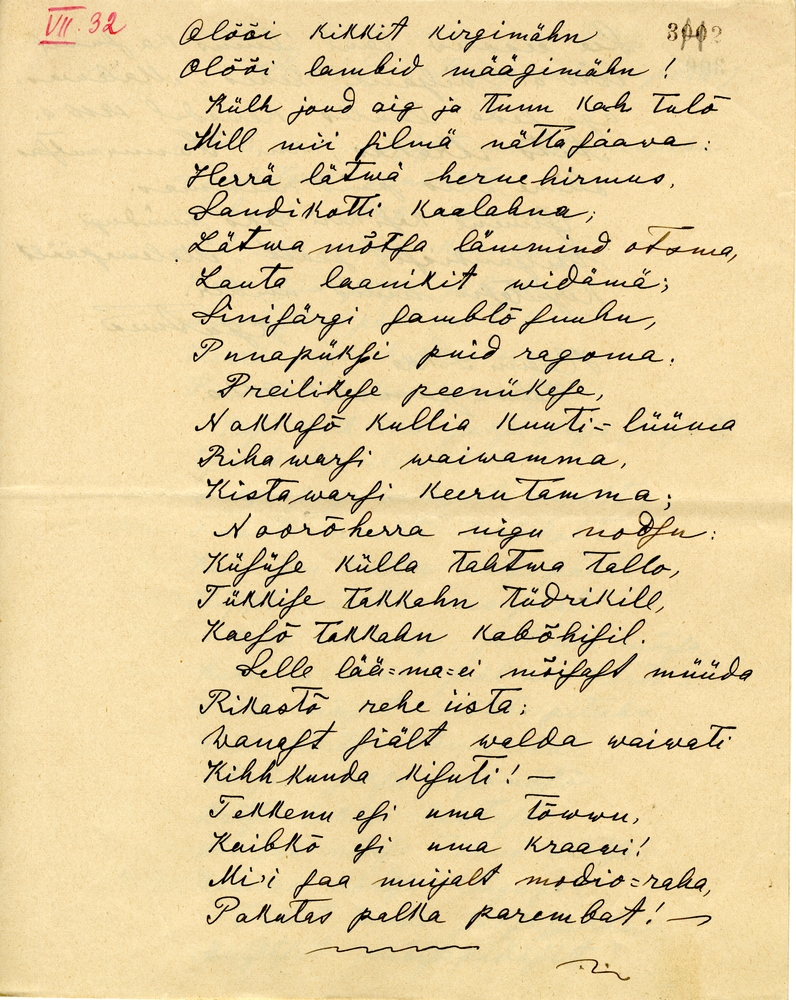 VII. 32
Olõõi kikkit kirgimähn
Olõõi lambid määgimähn!
Külh joud aig ja tunn kah tulõ
Mill mii silmä nättasaawa:
Herrä lätwä hernehirmus,
Sandikotti kaalahna;
Lätwa mõtsa lämmind otsma,
Lauta laanikit widämä;
Sinisärgi samblõ suuhu,
Punapüksi puid ragoma.
Preilikese peenükese,
Nakkasõ kullia kuuti-lüüma
Rihawarsi waiwamma,
Kistawarsi keerutamma;
Noorõherra nigu nodsu:
Küsüse külla tahtwa tallo,
Tükkise takkahn tüdrikill,
Kaesõ takkahn kabõhisil.
Selle lää-ma-ei mõisast müüda
Rikastõ rehe iista;
Wanast siält walda waiwati
Kihhkunda kisuti! —
Tekkenu esi uma tõwwu,
Kaibkõ esi uma kraawi!
Mi'i saa muijalt modio-raha,
Pakutas palka parembat! —